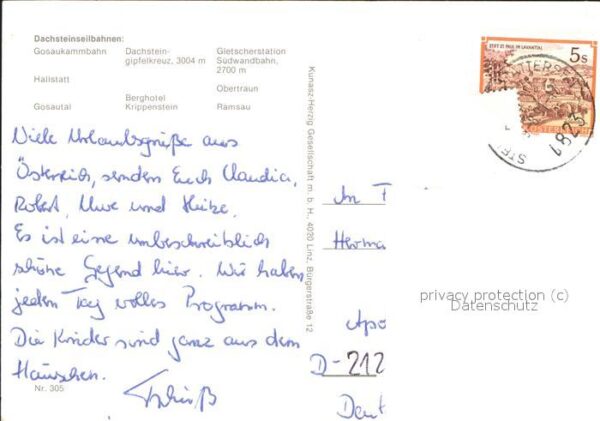 Dachsteinseilbahnen:
Gosaukammbahn
Dachstein-
gipfelkreuz, 3004 m
Gletscherstation
Südwandbahn,
2700 m
Hallstatt
Obertraun
Gosautal
Berghotel
Krippenstein
Ramsau
Viele Urlaubsgrüße aus
Österreich, senden Euch Claudia,
Robert, Uwe und Heike.
Es ist eine unbeschreiblich
schöne Gegend hier. Wir haben
jeden Tag volles Programm.
Die Kinder sind ganz aus dem
Häuschen.
Nr. 305
Kunasz-Herzig Gesellschaft m. b. H., 4020 Linz, Bürgerstraße 12
STIFT ST. PAUL IM LAVANTTAL
5 s
An F
Herma
privacy protection (c)
Datenschutz
Apo
D-212
Deut